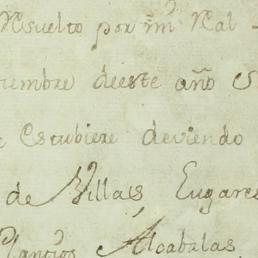 Rsuelto por mi Real
tiembre deeste año S
e Estubiere deviendo
de Villas, Lugares
Plantios Alcabalas,